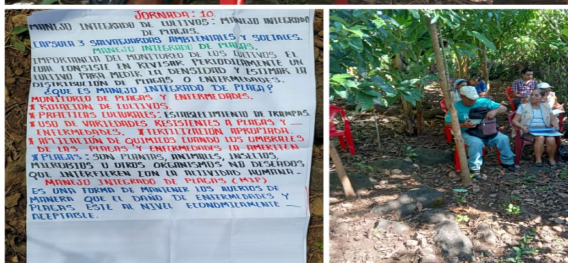 JORNADA: 10
MANEJO INTEGRADO DE CULTIVOS: MANEJO INTEGRADO
DE PLAGAS.
CAPSULA 3 SALVAGUARDAS AMBIENTALES Y SOCIALES.
MANEJO INTEGRADO DE PLAGAS.
IMPORTANCIA DEL MONITOREO DE LOS CULTIVOS. EL
CUAL CONSISTE EN REVISAR PERIODICAMENTE UN
CULTIVO PARA MEDIR LA DENSIDAD Y ESTIMAR LA
DISTRIBUCION DE PLAGAS O ENFERMEDADES.
¿QUE ES MANEJO INTEGRADO DE PLAGA?
MONITOREO DE PLAGAS Y ENFERMEDADES.
* ROTACION DE CULTIVOS.
* PRACTICAS CULTURALES: ESTABLECIMIENTO DE TRAMPAS.
* USO DE VARIEDADES RESISTENTES A PLAGAS Y
ENFERMEDADES. * FERTILIZACION APROPIADA.
* APLICACION DE QUIMICOS CUANDO LOS UMBRALES
DE LAS PLAGAS Y ENFERMEDADES LA AMERITEN
* PLAGAS: SON PLANTAS, ANIMALES, INSECTOS,
MICROBIOS U OTROS ORGANISMOS NO DESEADOS
QUE INTERFIEREN CON LA ACTIVIDAD HUMANA.
MANEJO INTEGRADO DE PLAGAS (MIP)
ES UNA FORMA DE MANTENER LOS HUERTOS DE
MANERA QUE EL DAÑO DE ENFERMEDADES Y
PLAGAS ESTE AL NIVEL ECONOMICAMENTE
ACEPTABLE.